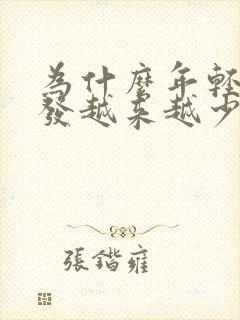 為什麼年輕
發越来越少
張鍇雍